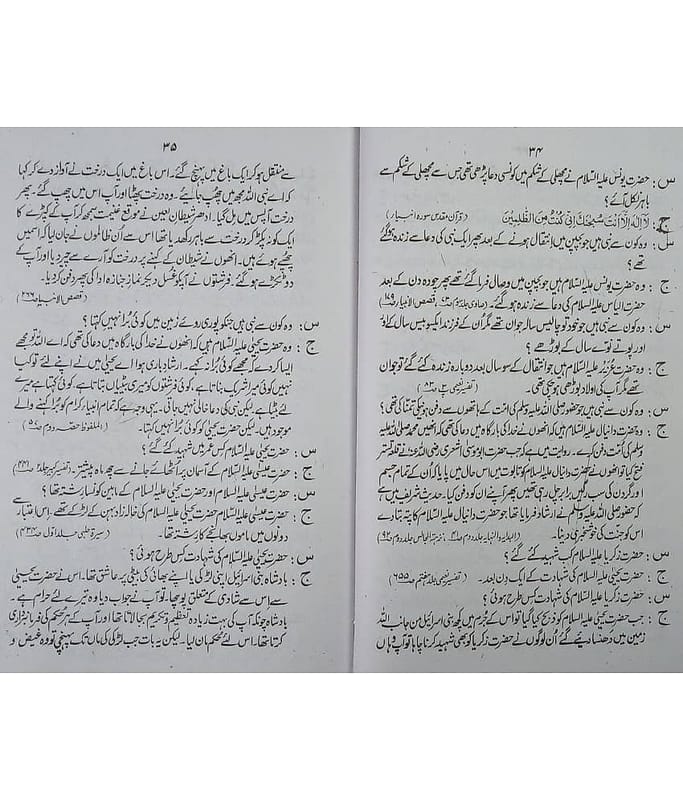 ۳۴
س : حضرت یونس علیہ السلام نے مچھلی کے شکم میں کونسی دعا پڑھی تھی جس سے مچھلی کے شکم سے
باہر نکل آئے ؟
ج : لا اله الا انت سبحنك انی كنت من الظلمين (قرآن مقدس سورہ انبیاء)
س : وہ کون سے نبی ہیں جو بچپن میں انتقال ہونے کے بعد پھر ایک نبی کی دعا سے زندہ ہوگئے
تھے ؟
ج : وہ حضرت یونس علیہ السلام ہیں جو بچپن میں وصال فرما گئے تھے پھر چودہ دن کے بعد
حضرت الیاس علیہ السلام کی دعا سے زندہ ہوگئے۔
س : وہ کون سے نبی ہیں جو خود تو چالیس سالہ جوان تھے مگر ان کے فرزند ایکسو بیس سال کے
اور پوتے نوے سال کے بوڑھے ؟
ج : وہ حضرت عزیر علیہ السلام ہیں جو انتقال کے سو سال بعد دوبارہ زندہ کئے گئے تو جوان
تھے مگر آپ کی اولاد بوڑھی ہو چکی تھی۔
س : وہ کون سے نبی ہیں جو حضور صلی اللہ علیہ وسلم کی امت کے ہاتھوں سے دفن ہونیکی تمنا کی تھی ؟
ج : وہ حضرت دانیال علیہ السلام ہیں کہ انھوں نے خدا کی بارگاہ میں دعا کی تھی کہ انھیں محمد صلی اللہ علیہ
وسلم کی امت دفن کرے۔ روایت ہے کہ جب حضرت ابو موسیٰ اشعری رضی اللہ عنہ نے قلعہ تستر
فتح کیا تو انھوں نے حضرت دانیال علیہ السلام کو تابوت میں اس حال میں پایا کہ ان کے تمام جسم
اور گردن کی سب رگیں برابر چل رہی تھیں پھر آپنے ان کو دفن کیا۔ حدیث شریف میں ہے
کہ حضور صلی اللہ علیہ وسلم نے ارشاد فرمایا تھا جو حضرت دانیال علیہ السلام کا پتہ بتائے
اس کو جنت کی خوشخبری دینا۔
س : حضرت زکریا علیہ السلام کب شہید کئے گئے ؟
ج : حضرت یحییٰ علیہ السلام کی شہادت کے ایک دن بعد۔ (تفسیر نعیمی جلد ہفتم ص۶۵۵)
س : حضرت زکریا علیہ السلام کی شہادت کس طرح ہوئی ؟
ج : جب حضرت یحییٰ علیہ السلام کو ذبح کیا گیا تو اس کے جرم میں کچھ بنی اسرائیل من جانب اللہ
زمین میں دھنسا دیئے گئے ان لوگوں نے حضرت زکریا کو بھی شہید کرنا چاہا تو آپ وہاں
۳۵
سے منتقل ہو کر ایک باغ میں پہنچ گئے۔ اس باغ میں ایک درخت نے آواز دے کر کہا
کہ اے نبی اللہ مجھ میں چھپ جایئے۔ وہ درخت پھٹا اور آپ اس میں چھپ گئے۔ پھر
درخت آپس میں مل گیا۔ ادھر شیطان لعین نے موقع غنیمت سمجھ کر آپ کے کپڑے کا
ایک کونہ پکڑ کر درخت سے باہر رکھدیا تھا اس سے ان ظالموں نے جان لیا کہ اسمیں
چھپے ہوئے ہیں۔ انھوں نے شیطان کے کہنے پر درخت کو آرے سے چیر دیا اور آپ کے
دو ٹکڑے ہوگئے۔ فرشتوں نے آپکو غسل دیکر نماز جنازہ ادا کی پھر دفن کر دیا۔
(قصص الانبیاء ص۲۶۶)
س : وہ کون سے نبی ہیں جنکو پوری روئے زمین میں کوئی برا نہیں کہتا ؟
ج : وہ حضرت یحییٰ علیہ السلام ہیں کہ انھوں نے خدا کی بارگاہ میں دعا کی تھی کہ اے اللہ تو مجھے
ایسا کر دے کہ مجھے کوئی برا نہ کہے۔ ارشاد باری ہوا اے یحییٰ میں نے اپنے لئے تو کیا
نہیں کوئی میرا شریک بناتا ہے، کوئی فرشتوں کو میری بیٹیاں بناتا ہے، کوئی کہتا ہے میرے
لئے بیٹا ہے لیکن نبی کی دعا خالی نہیں جاتی۔ یہی وجہ ہے کہ تمام انبیاء کرام کو برا کہنے والے
موجود ہیں۔ لیکن حضرت یحییٰ کو کوئی برا نہیں کہتا۔ (الملفوظ حصہ دوم)
س : حضرت یحییٰ علیہ السلام کس عمر میں شہید کئے گئے ؟
ج : حضرت عیسیٰ علیہ السلام کے آسمان پر اٹھائے جانے سے چھ ماہ پیشتر۔
س : حضرت عیسیٰ علیہ السلام اور حضرت یحییٰ علیہ السلام کے مابین کونسا رشتہ تھا ؟
ج : حضرت عیسیٰ علیہ السلام حضرت یحییٰ علیہ السلام کی خالہ زاد بہن کے لڑکے تھے۔ اس اعتبار سے
دونوں میں ماموں بھانجے کا رشتہ تھا۔ (سیرۃ حلبی جلد اول ص۴۳۴)
س : حضرت یحییٰ علیہ السلام کی شہادت کس طرح ہوئی ؟
ج : بادشاہ بنی اسرائیل اپنی لڑکی یا اپنے بھائی کی بیٹی پر عاشق تھا۔ اس نے حضرت یحییٰ
سے اس سے شادی کے متعلق پوچھا۔ تو آپ نے جواب دیا وہ تیرے لئے حرام ہے۔
بادشاہ چونکہ آپ کی بہت زیادہ تعظیم و تکریم بجا لاتا تھا اور آپ کے ہر حکم کی فرمانبرداری
کرتا تھا۔ اس لئے حکم مان لیا۔ لیکن یہ بات جب لڑکی کی ماں تک پہنچی تو وہ غیض و